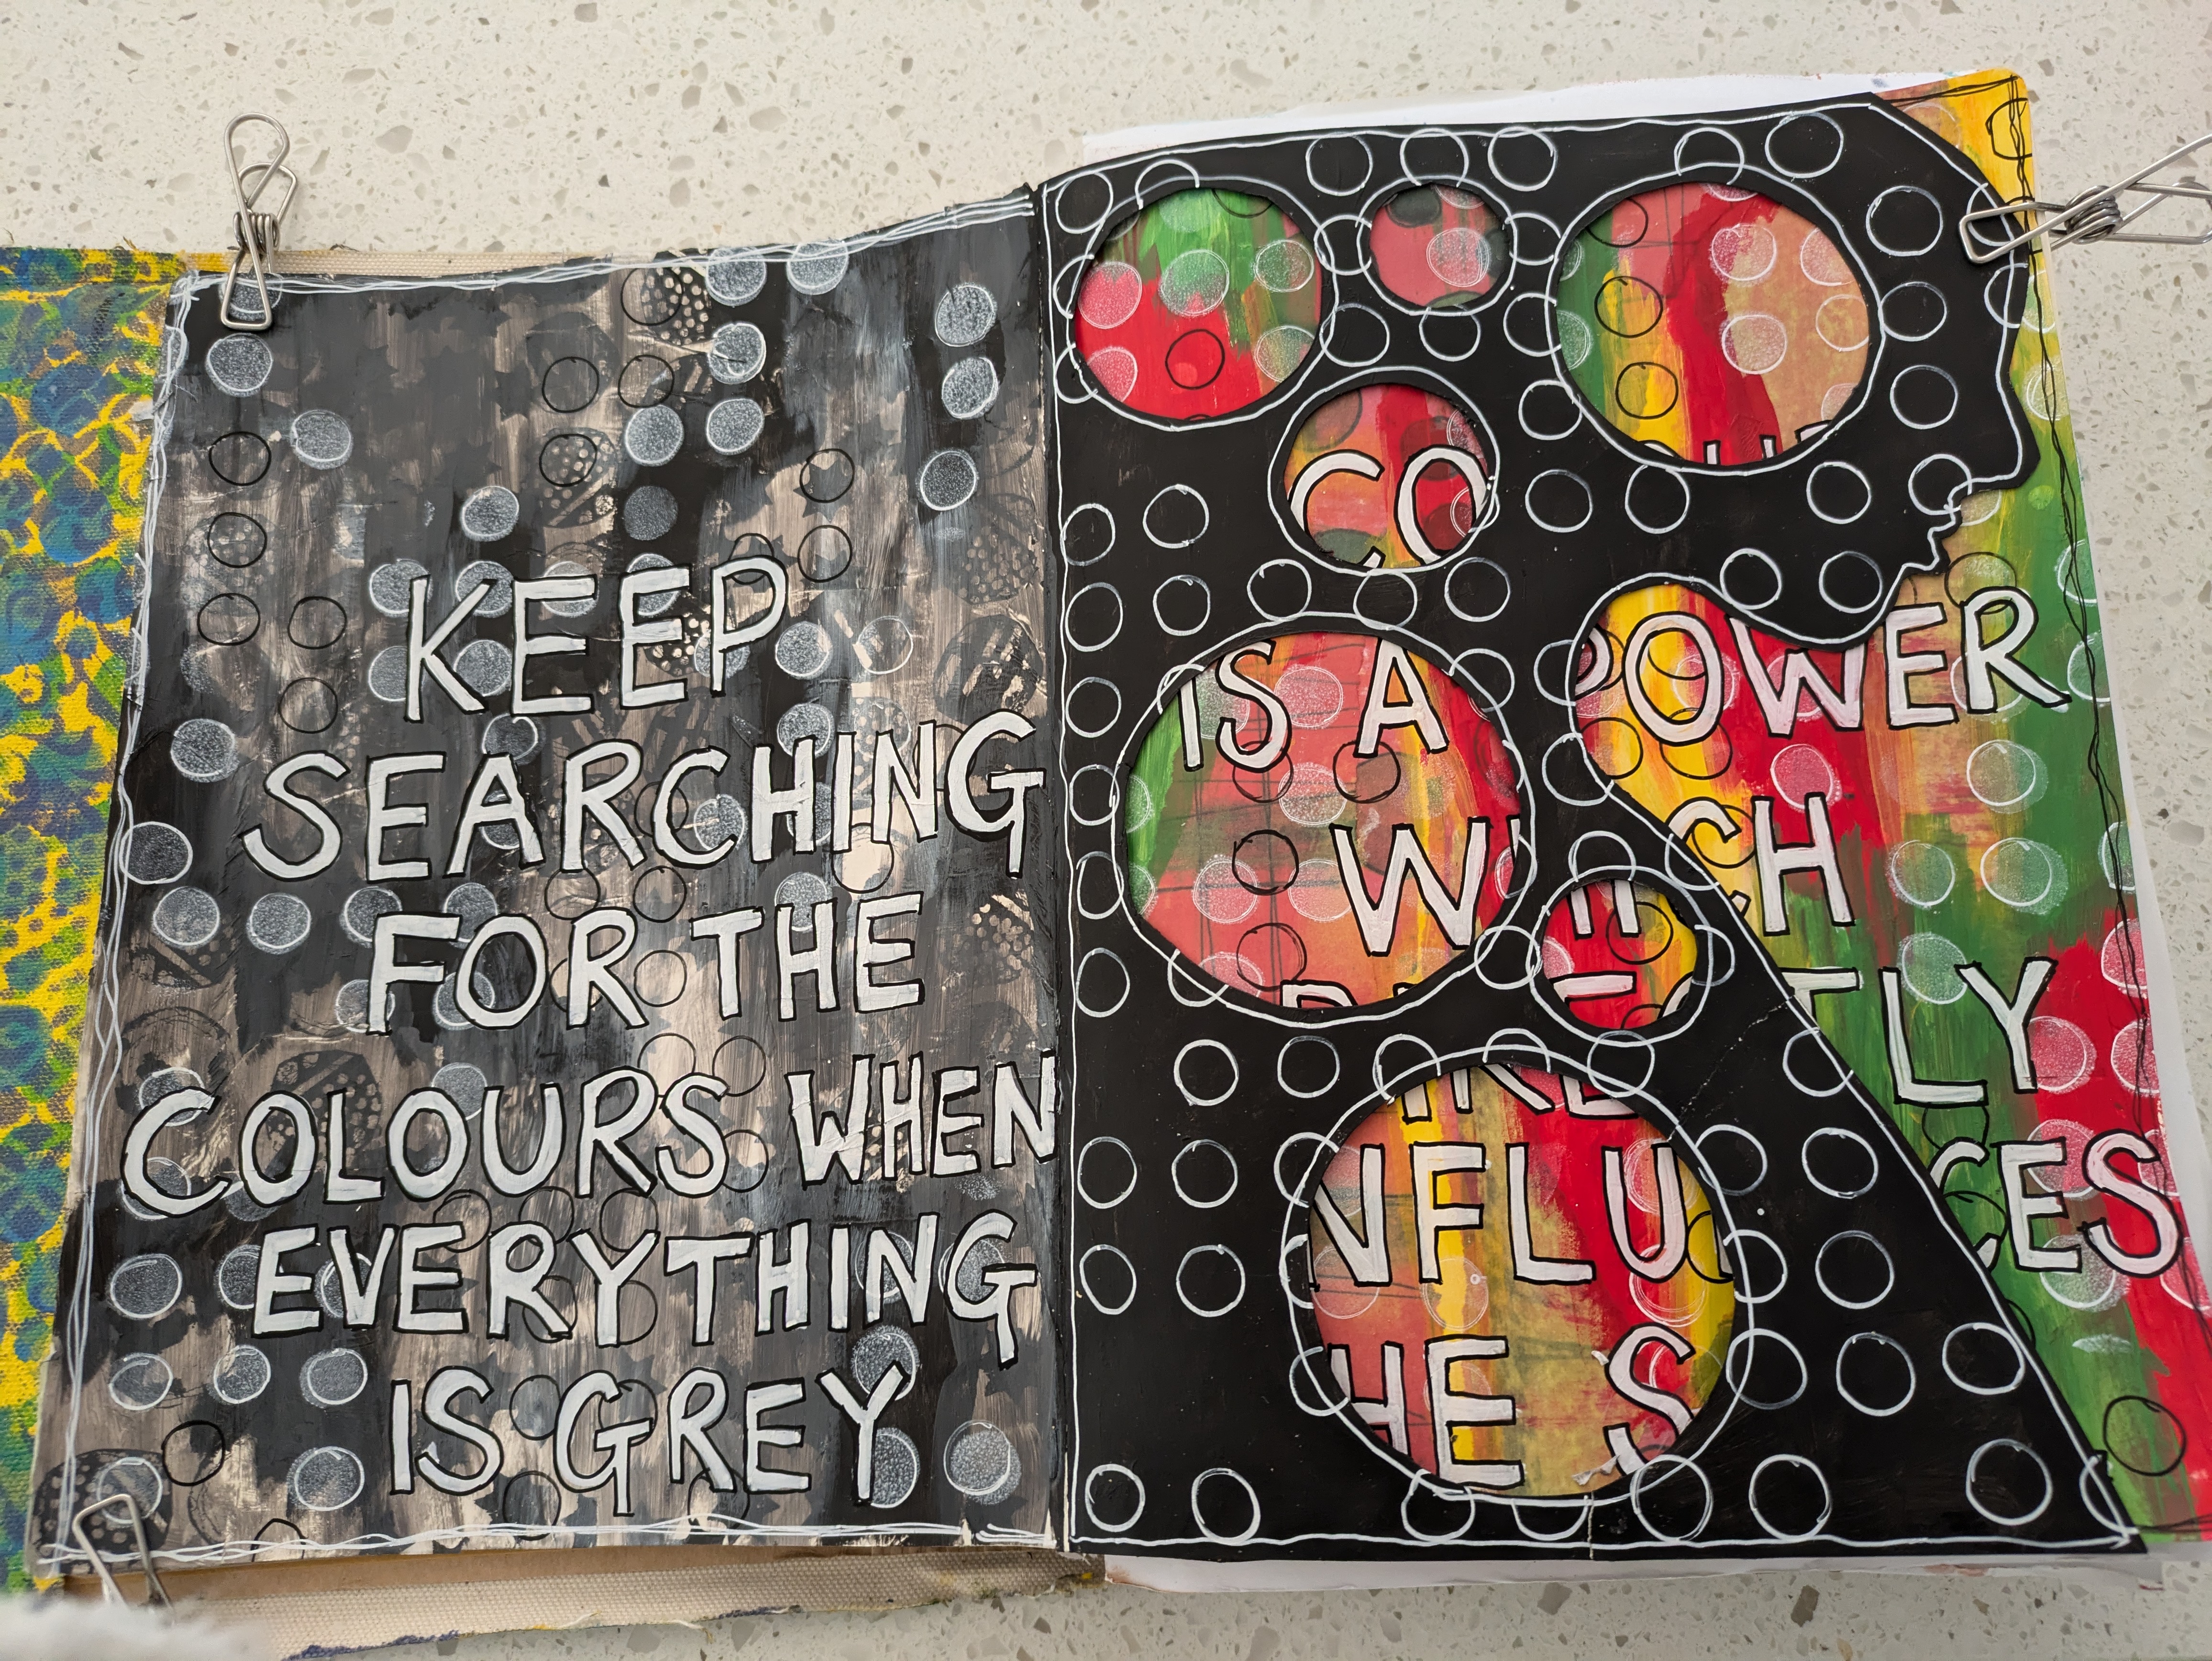 KEEP
SEARCHING
FOR THE
COLOURS WHEN
EVERYTHING
IS GREY
CO
IS A POWER
WHICH
TLY
NFLU CES
HE S